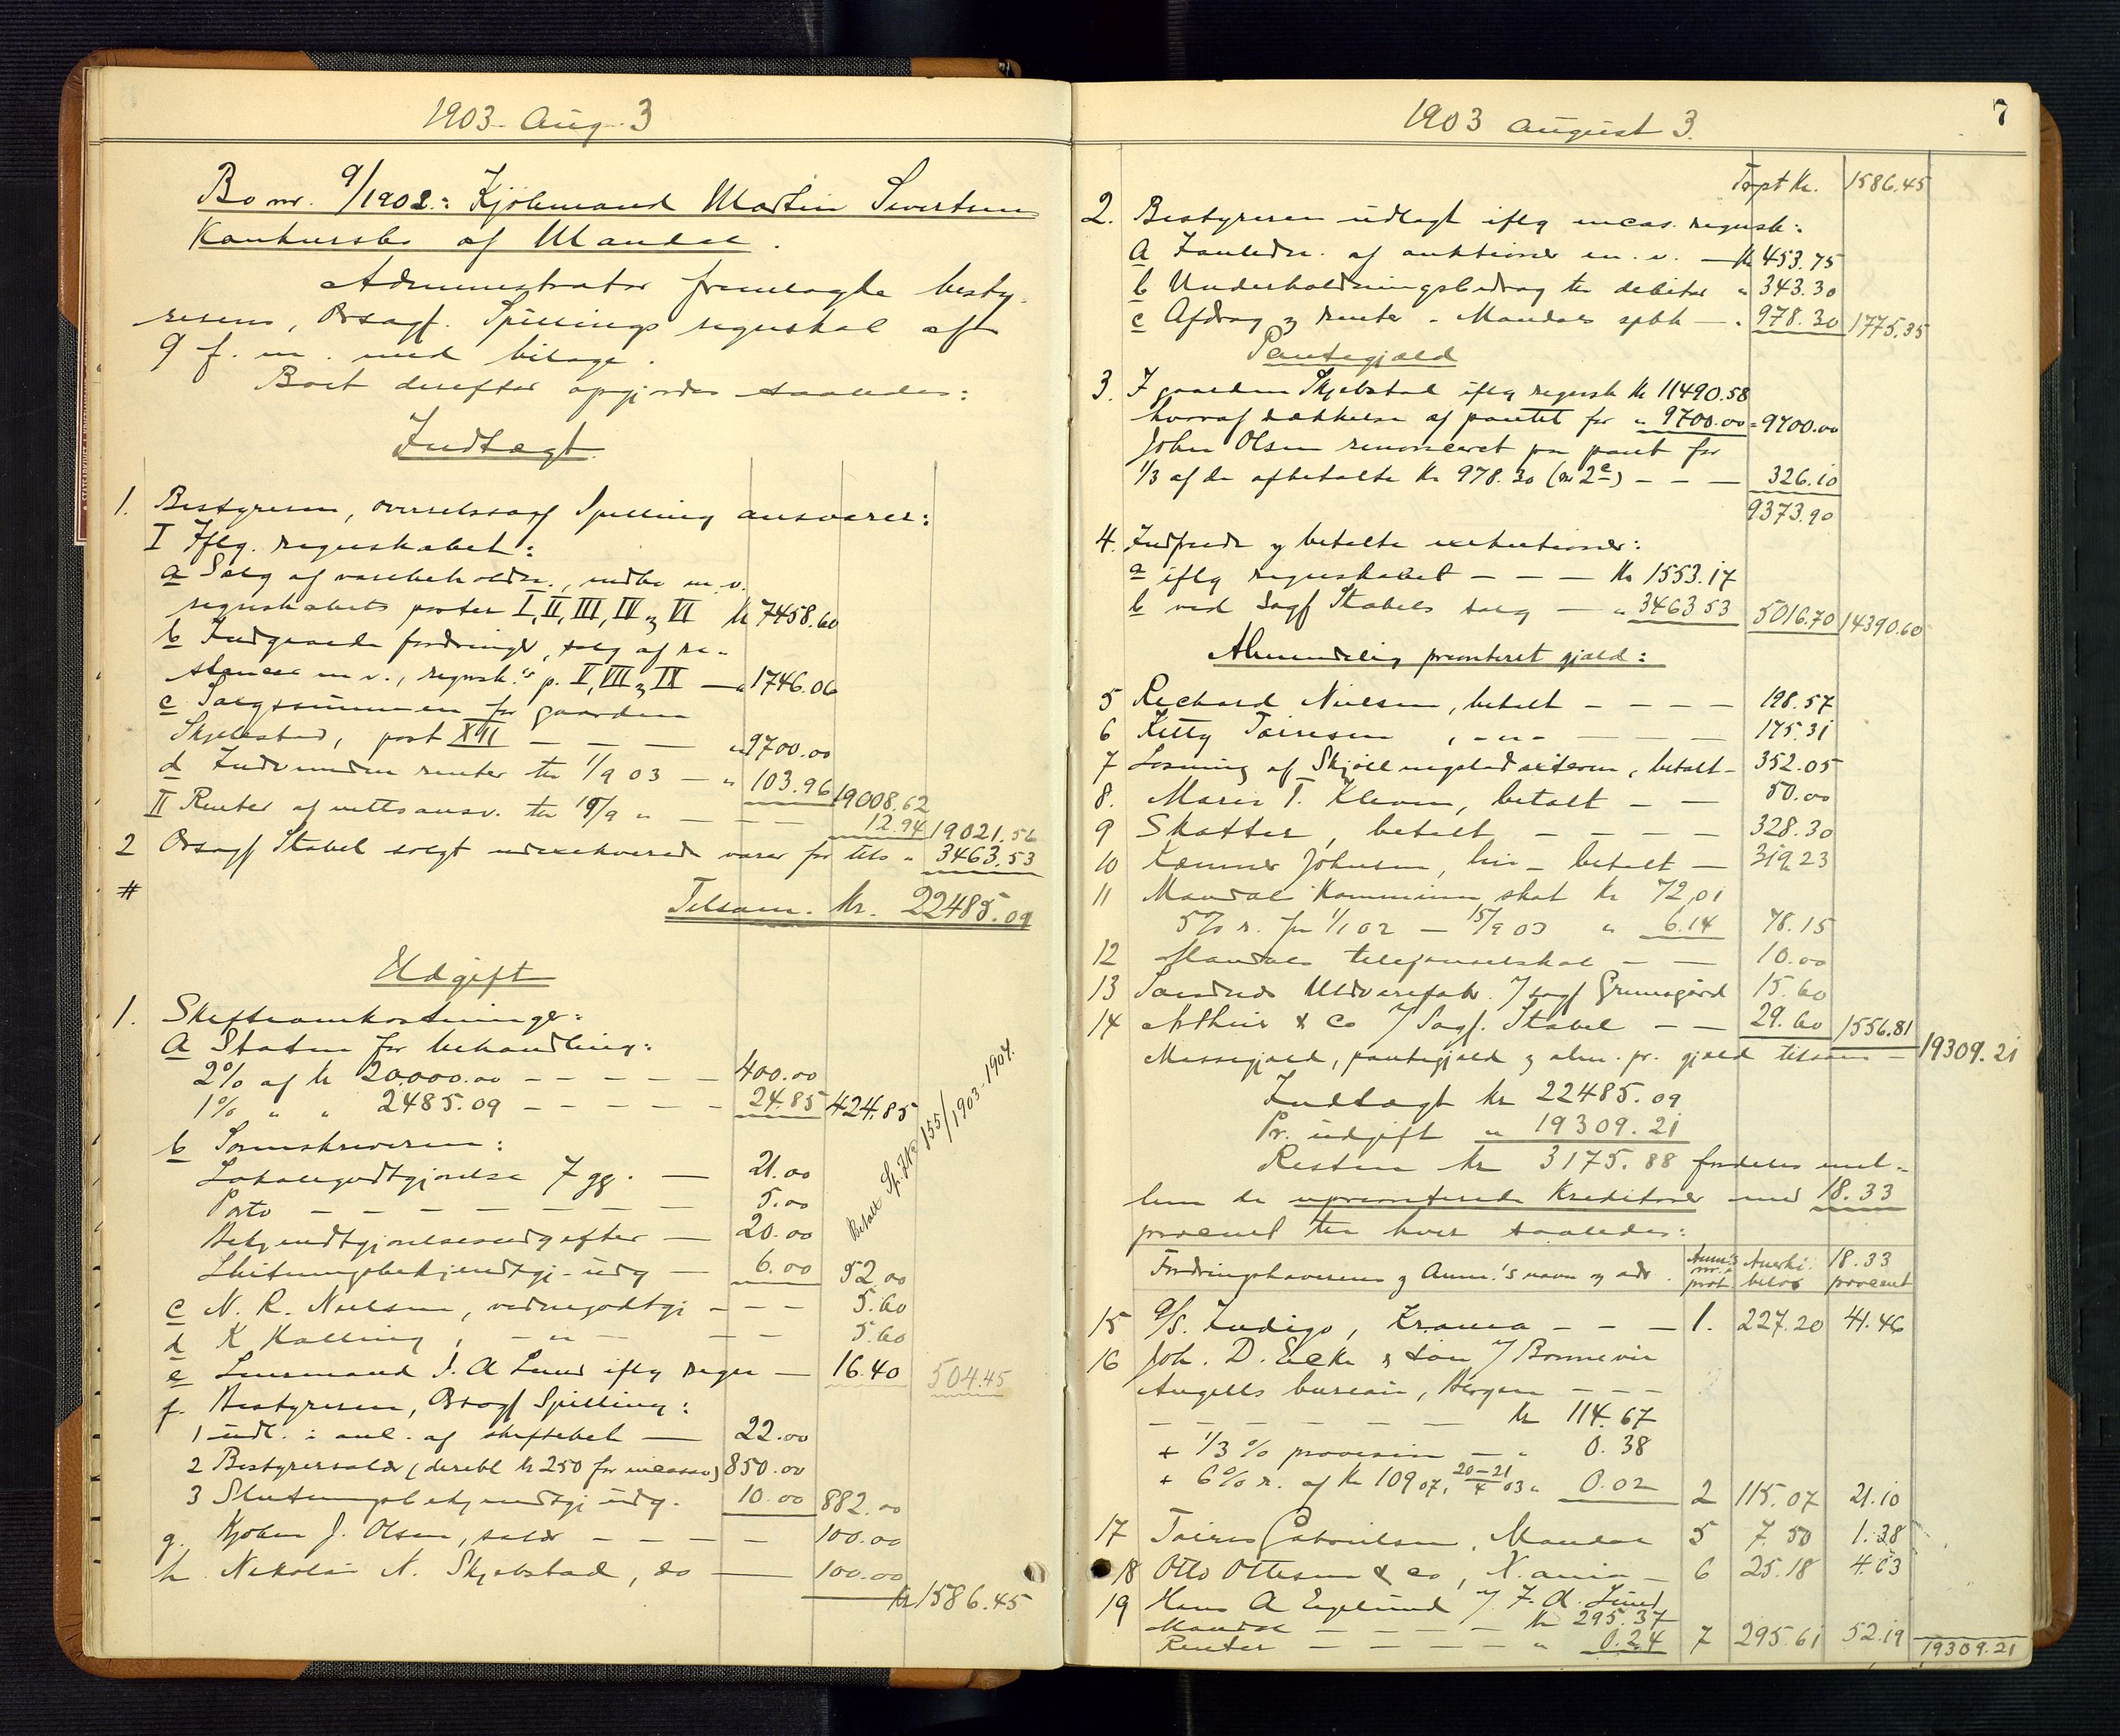 1903 Aug. 3
Bo nr. 9/1902: Kjöbmand Martin Sivertsen
Konkursbo af Mandal.
Administrator fremlagte besty-
rerens, Orsagf. Spillings regnskab aft
9 f. m. med bilage.
Boet derefter opgjordes saaledes:
Indtægt
1. Bestyreren, overretssagf Spilling ansvarer:
I Iflg. regnskabet:
a Salg af varebeholdn., indbo m. v.
regnskabets poster I, II, III, IV og VI kr 7458.60
b Indgaaede fordringer, salg af re-
stancer m v., regnsk.'s p. V, VII og IX — " 1746.06
c Salgssummen for gaarden
Skjebstad, post XII — — — " 9700.00
d Indvundne renter til 1/9 03 — " 103.96 19008.62
II Renter af nettoansv. til 18/9 " — — — 12.94 19021.56
2 Orsagf Stabel solgt udexekverede varer for tils " 3463.53
# Tilsam. kr. 22485.09
Udgift
1. Skifteomkostninger:
a Staten for behandling:
2% af kr 20.000.00 — — — — — 400.00
1% " " 2485.09 — — — — — 24.85 424.85
b Sorenskriveren:
Lokalegodtgjørelse 7 gg. — 21.00
Porto — — — — — — — 5.00
Bekjendtgjørelsesudgifter — 20.00
Slutningsbekjendtgj. udg — 6.00 52.00
Betalt Sp. J No 155/1903-1904.
c N. R. Nielsen, vidnegodtgj — — — 5.60
d K Kalling, — " — — — 5.60
e Lensmand J. A Lund iflg regn — 16.40 504.45
f. Bestyreren, Orsagf Spilling:
1 udl. i anl. af skiftebeh — 22.00
2 Bestyrersalær (deribl kr 250 for incasso) 850.00
3 Slutningsbekjendtgj udg. 10.00 882.00
g. Kjøbm J. Olsen, salær — — — — 100.00
h Nikolai N. Skjebstad, do — 100.00
kr 1586.45
1903 August 3. 7
Trspt kr. 1586.45
2. Bestyreren udlagt iflg incas. regnsk:
a I anledn. af auktioner m. v. — kr 453.75
b Underholdningsbidrag til debitor " 343.30
c Afdrag og renter - Mandals spbk — " 978.30 1775.35
Pantegjæld
3. I gaarden Skjebstad iflg regnsk kr 11490.58
hvoraf dækkelse af pantet for " 9700.00 = 9700.00
John Olsen renonceret pa pant for
1/3 af de afbetalte kr 978.30 (nr 2c) — — — 326.10
9373.90
4. Indfriede og betalte exekutioner:
a iflg regnskabet — — — kr 1553.17
b ved sagf Stabels salg — " 3463.53 5016.70 14390.60
Almindelig prioriteret gjæld:
5 Richard Nielsen, betalt — — — — 198.57
6 Kitty Tøiresen, — " — — — — 175.31
7 Løsning af Skjøllingstad, betalt — 352.05
8. Marie T. Kleven, betalt — — 50.00
9 Skatter, betalt — — — — 328.30
10 Kæmner Johnsen, betalt — 319.23
11 Mandal Kommune, skat kr 72.01
5% r. fra 1/1 02 — 15/9 03 " 6.14 78.15
12 Mandals telefonselskab — — 10.00
13 Sandnes Uldvarefabr. v/ sagf Grunsgård 15.60
14 Arthur & Co v/ Sagf. Stabel — — 29.60 1556.81
Massegjæld, pantegjæld og alm. pr. gjæld tilsam — 19309.21
Indtægt kr 22485.09
Pr. udgift " 19309.21
Resten kr 3175.88 fordeles mel-
lem de uprioriterede kreditorer med 18.33
procent til hver saaledes:
Fordringshaverens og Anm.'s navn og adr. Anm's nr. i prot. Anerkj. beløb 18.33 procent
15 A/S. Indigo, Kr.ania — — — 1. 227.20 41.46
16 Joh. D. Eicke & søn v/ Bonnevie
Angells bureau, Bergen — — —
— — — — — — kr 114.67
+ 1/3 % provision — " 0.38
+ 6% r. af kr 109 07, 20-21/4 03 " 0.02 2 115.07 21.10
17 Tøires Gabrielsen, Mandal 5 7.50 1.38
18 Otto Ottesen & co, K.ania — 6 25.18 4.63
19 Hans A Engelund v/ F. A. Lund
Mandal — — — — kr 295.37
Renter — — — — " 0.24 7 295.61 52.19 19309.21